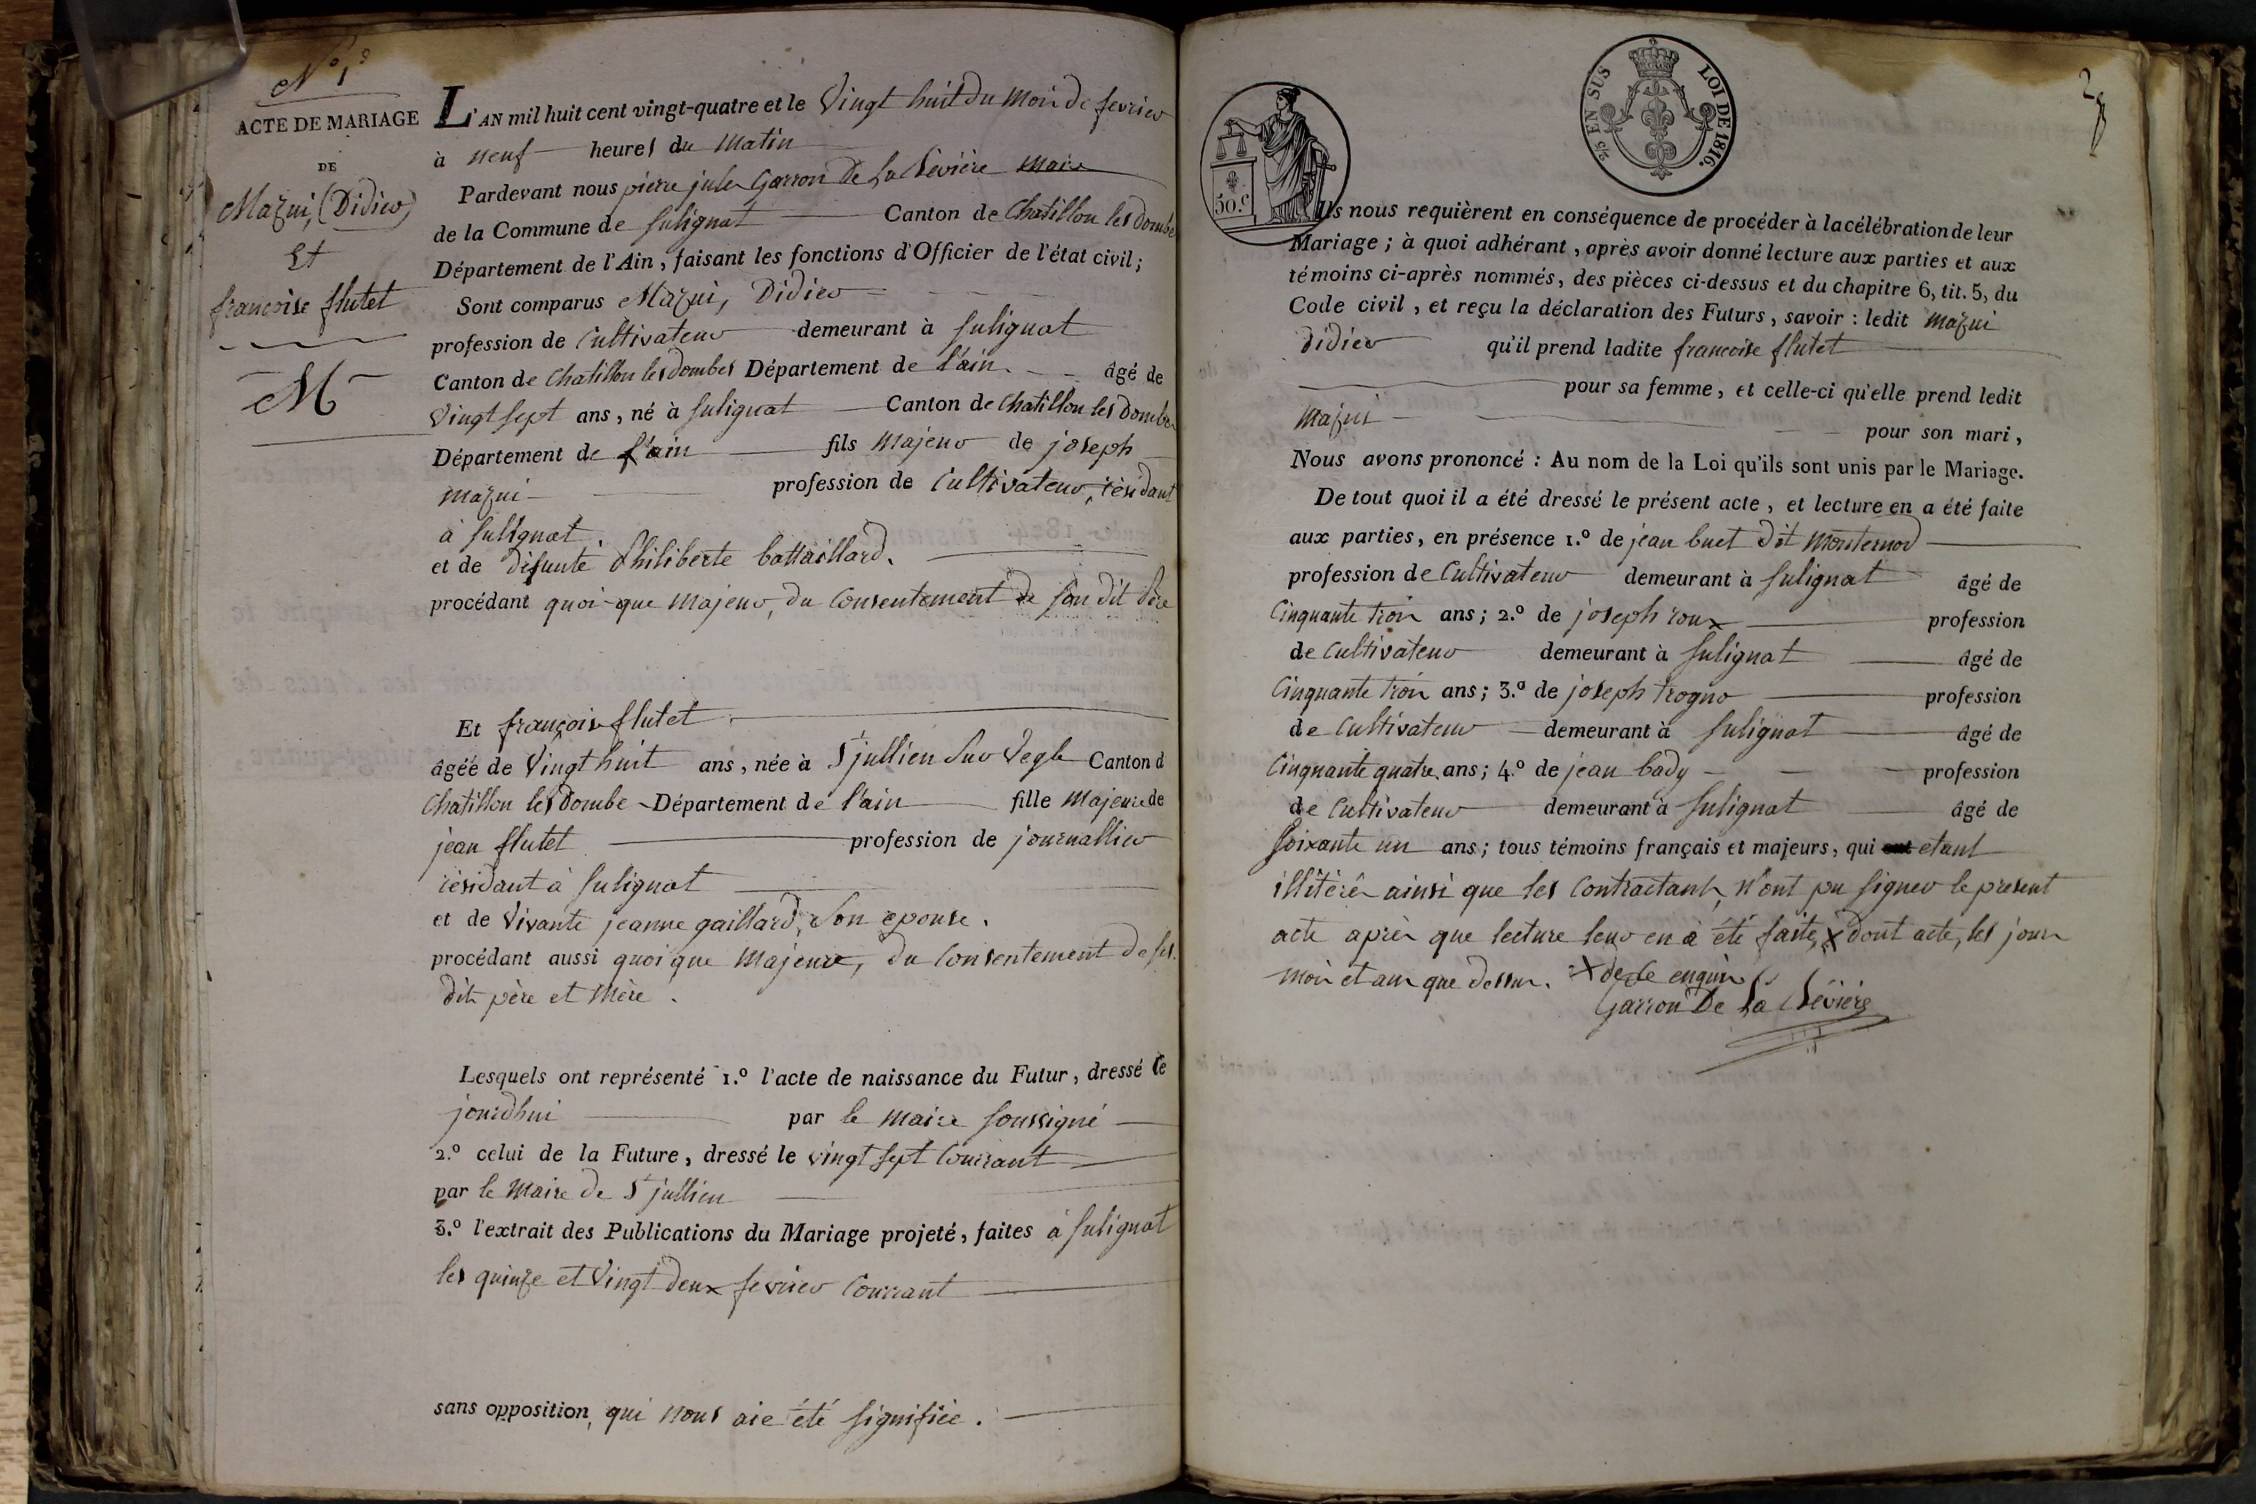 N° 1°
ACTE DE MARIAGE
DE
Mazui, (Didier)
Et
françoise flutet
M
L'AN mil huit cent vingt-quatre et le Vingt huit du Mois de fevrier
à neuf heures du Matin
Pardevant nous pierre jules Garron De La Bévière Maire
de la Commune de Sulignat Canton de Chatillon les Dombe
Département de l'Ain, faisant les fonctions d'Officier de l'état civil;
Sont comparus Mazui, Didier
profession de Cultivateur demeurant à Sulignat
Canton de Chatillon les Dombes Département de l'ain âgé de
Vingt sept ans, né à Sulignat Canton de Chatillon les Dombes
Département de l'ain fils Majeur de joseph
mazui profession de Cultivateur, résidant
à Sulignat
et de défunte Philiberte battaillard.
procédant quoi-que Majeur, du Consentement de son dit Père
Et françoise flutet
âgée de Vingt huit ans, née à St jullien sur Vegle Canton d
Chatillon les Dombe Département de l'ain fille Majeure de
jean flutet profession de journallier
résidant à Sulignat
et de Vivante jeanne gaillard, Son epouse.
procédant aussi quoi que Majeure, du Consentement de ses
dits père et Mère.
Lesquels ont représenté 1.º l'acte de naissance du Futur, dressé ce
jourdhui par le Maire soussigné
2.º celui de la Future, dressé le vingt sept Courrant
par le Maire de St jullien
3.º l'extrait des Publications du Mariage projeté, faites à Sulignat
les quinze et Vingt deux fevrier Courrant
sans opposition, qui nous aie été signifiée.
50.c
25/c EN SUS LOI DE 1816.
28
Ils nous requièrent en conséquence de procéder à la célébration de leur
Mariage; à quoi adhérant, après avoir donné lecture aux parties et aux
témoins ci-après nommés, des pièces ci-dessus et du chapitre 6, tit. 5, du
Code civil, et reçu la déclaration des Futurs, savoir: ledit mazui
Didier qu'il prend ladite françoise flutet
pour sa femme, et celle-ci qu'elle prend ledit
Mazui pour son mari,
Nous avons prononcé: Au nom de la Loi qu'ils sont unis par le Mariage.
De tout quoi il a été dressé le présent acte, et lecture en a été faite
aux parties, en présence 1.º de jean buet dit Monternod
profession de Cultivateur demeurant à Sulignat âgé de
Cinquante trois ans; 2.º de joseph roux profession
de Cultivateur demeurant à Sulignat âgé de
Cinquante trois ans; 3.º de joseph trogno profession
de Cultivateur demeurant à Sulignat âgé de
Cinquante quatre ans; 4.º de jean bady profession
de Cultivateur demeurant à Sulignat âgé de
Soixante un ans; tous témoins français et majeurs, qui etant
illitérés ainsi que les Contractants, n'ont pu signer le present
acte après que lecture leur en a été faite, X dont acte, les jour
mois et an que dessus. X de ce enquis
Garron De La Bévière